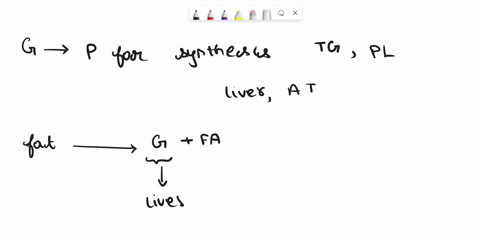 G → P for synthesis TG, PL
liver, AT
fat → G + FA
liver